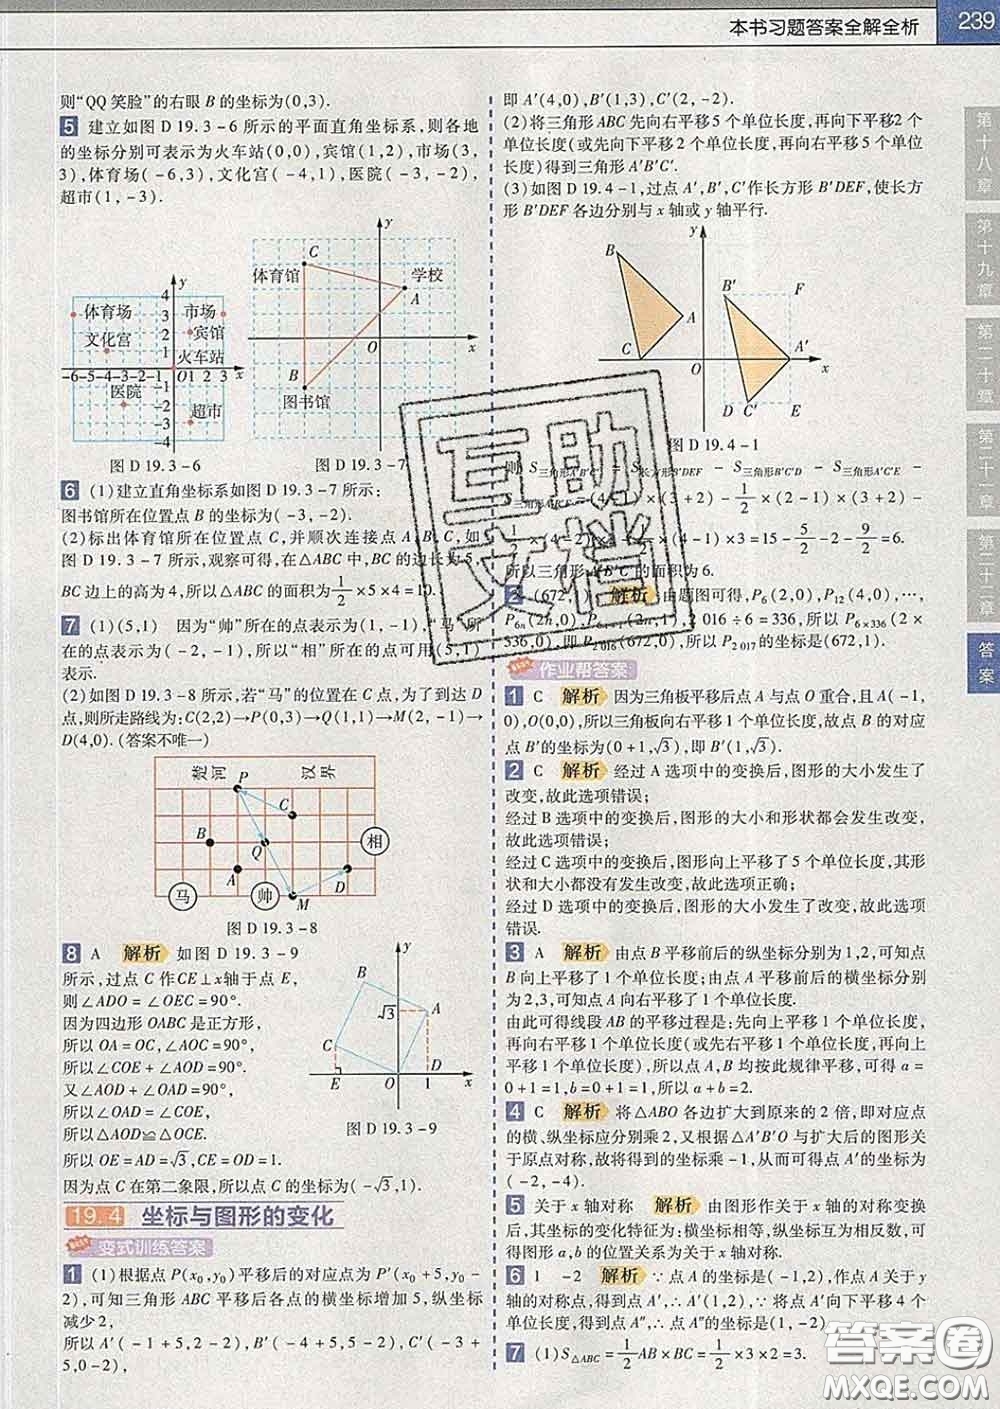 本书习题答案全解全析
239
则“QQ 笑脸”的右眼 B 的坐标为(0,3).
5 建立如图 D 19.3-6 所示的平面直角坐标系,则各地
的坐标分别可表示为火车站(0,0),宾馆(1,2),市场(3,
3),体育场(-6,3),文化宫(-4,1),医院(-3,-2),
超市(1,-3).
体育场
市场
文化宫
宾馆
火车站
医院
超市
图 D 19.3-6
体育馆
C
学校
A
B
图书馆
O
x
y
图 D 19.3-7
6 (1)建立直角坐标系如图 D 19.3-7 所示;
图书馆所在位置点 B 的坐标为(-3,-2).
(2)标出体育馆所在位置点 C,并顺次连接点 A,B,C,如
图 D 19.3-7 所示,观察可得,在△ABC 中,BC 的边长为5,
BC 边上的高为4,所以△ABC 的面积为1/2×5×4=10.
7 (1)(5,1) 因为“帅”所在的点表示为(1,-1),“马”所
在的点表示为(-2,-1),所以“相”所在的点可表示为(5,1)
表示.
(2)如图 D 19.3-8 所示,若“马”的位置在 C 点,为了到达 D
点,则所走路线为:C(2,2)→P(0,3)→Q(1,1)→M(2,-1)→
D(4,0). (答案不唯一)
楚河 汉界
P
C
B
Q
相
A
D
马
帅
M
图 D 19.3-8
8 A 解析 如图 D 19.3-9
所示,过点 C 作CE⊥x轴于点 E,
则∠ADO=∠OEC=90°.
因为四边形 OABC 是正方形,
所以 OA=OC,∠AOC=90°,
所以∠COE+∠AOD=90°.
又∠AOD+∠OAD=90°,
所以∠OAD=∠COE,
所以△AOD≌△OCE.
所以 OE=AD=√3,CE=OD=1.
因为点 C 在第二象限,所以点 C 的坐标为(-√3,1).
图 D 19.3-9
19.4 坐标与图形的变化
变式训练答案
1 (1)根据点 P(x0,y0)平移后的对应点为 P′(x0+5,y0-
2),可知三角形 ABC 平移后各点的横坐标增加 5,纵坐标
减少2,
所以 A′(-1+5,2-2),B′(-4+5,5-2),C′(-3+
5,0-2),
即 A′(4,0),B′(1,3),C′(2,-2).
(2)将三角形 ABC 先向右平移5 个单位长度,再向下平移2 个
单位长度(或先向下平移 2 个单位长度,再向右平移5 个单位
长度)得到三角形 A′B′C′.
(3)如图 D 19.4-1,过点 A′,B′,C′作长方形 B′DEF,使长方
形 B′DEF 各边分别与 x 轴或 y 轴平行.
图 D 19.4-1
则 S三角形A′B′C′=S长方形B′DEF-S三角形B′C′D-S三角形A′C′E-
S三角形A′B′F=(4-1)×(3+2)-1/2×(2-1)×(3+2)-
×(4-1)×3=15-5/2-2-9/2=6.
所以三角形 A′B′C′的面积为 6.
2 (672,1) 解析 由题图可得,P6(2,0),P12(4,0),…,
P6n(2n,0),P6n+1(2n,1),2 016÷6=336,所以 P6×336(2×
336,0),即 P2 016(672,0),所以 P2 017的坐标是(672,1)
作业帮答案
1 C 解析 因为三角板平移后点 A 与点 O 重合,且 A(-1,
0),O(0,0),所以三角板向右平移 1 个单位长度,故点 B 的对应
点 B′的坐标为(0+1,√3),即 B′(1,√3).
2 C 解析 经过 A 选项中的变换后,图形的大小发生了
改变,故此选项错误;
经过 B 选项中的变换后,图形的大小和形状都会发生改变,
故此选项错误;
经过 C 选项中的变换后,图形向上平移了 5 个单位长度,其形
状和大小都没有发生改变,故此选项正确;
经过 D 选项中的变换后,图形的大小发生了改变,故此选项
错误.
3 A 解析 由点 B 平移前后的纵坐标分别为 1,2,可知点
B 向上平移了 1 个单位长度;由点 A 平移前后的横坐标分别
为 2,3,可知点 A 向右平移了 1 个单位长度.
由此可得线段 AB 的平移过程是:先向上平移 1 个单位长度,
再向右平移 1 个单位长度(或先右平移 1 个单位长度,再向上
平移 1 个单位长度),所以点 A,B 均按此规律平移,可得 a=
0+1=1,b=0+1=1,所以 a+b=2.
4 C 解析 将△ABO 各边扩大到原来的 2 倍,即对应点
的横、纵坐标应分别乘2,又根据△A′B′O 与扩大后的图形关
于原点对称,故将得到的坐标乘-1,从而可得点 A′的坐标为
(-2,-4).
5 关于 x 轴对称 解析 由图形作关于 x 轴的对称变换
后,其坐标的变化特征为:横坐标相等,纵坐标互为相反数,可
得图形 a,b 的位置关系为关于 x 轴对称.
6 1 -2 解析 ∵点 A 的坐标是(-1,2),作点 A 关于 y
轴的对称点,得到点 A′,∴A′(1,2),∵将点 A′向下平移 4 个
单位长度,得到点 A″,∴点 A″的坐标是(1,-2)
7 (1)S△ABC=1/2AB×BC=1/2×3×2=3.
第十八章
第十九章
第二十章
第二十一章
第二十二章
答案
互助
文档
答案圈
MXQE.COM